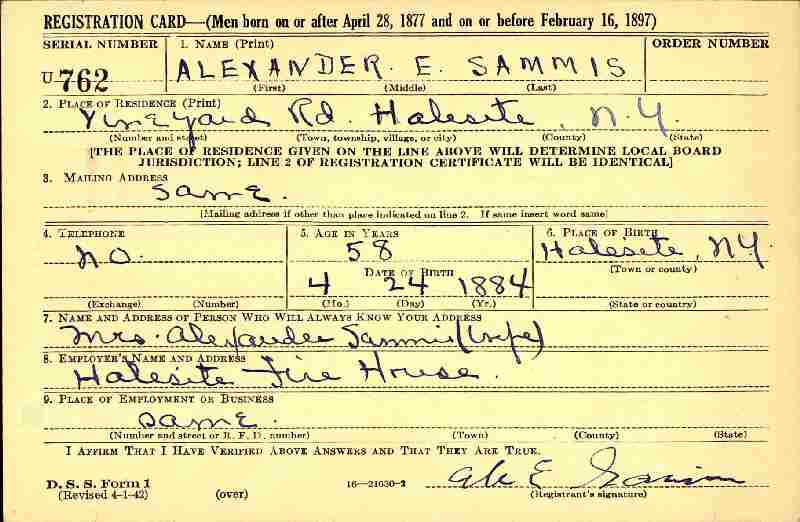 REGISTRATION CARD—(Men born on or after April 28, 1877 and on or before February 16, 1897)
SERIAL NUMBER 1. NAME (Print) ORDER NUMBER
U 762 ALEXANDER. E. SAMMIS
(First) (Middle) (Last)
2. PLACE OF RESIDENCE (Print)
Vineyard Rd. Halesite, N.Y.
(Number and street) (Town, township, village, or city) (County) (State)
[THE PLACE OF RESIDENCE GIVEN ON THE LINE ABOVE WILL DETERMINE LOCAL BOARD
JURISDICTION; LINE 2 OF REGISTRATION CERTIFICATE WILL BE IDENTICAL]
3. MAILING ADDRESS
Same.
[Mailing address if other than place indicated on line 2. If same insert word same]
4. TELEPHONE 5. AGE IN YEARS 6. PLACE OF BIRTH
no. 58 Halesite, N.Y.
DATE OF BIRTH (Town or county)
4 24 1884
(Exchange) (Number) (Mo.) (Day) (Yr.) (State or country)
7. NAME AND ADDRESS OF PERSON WHO WILL ALWAYS KNOW YOUR ADDRESS
Mrs. Alexander Sammis (wife)
8. EMPLOYER'S NAME AND ADDRESS
Halesite Fire House.
9. PLACE OF EMPLOYMENT OR BUSINESS
Same.
(Number and street or R. F. D. number) (Town) (County) (State)
I AFFIRM THAT I HAVE VERIFIED ABOVE ANSWERS AND THAT THEY ARE TRUE.
D. S. S. Form 1
(Revised 4-1-42) (over) 16—21630-2 Alex E Sammis
(Registrant's signature)